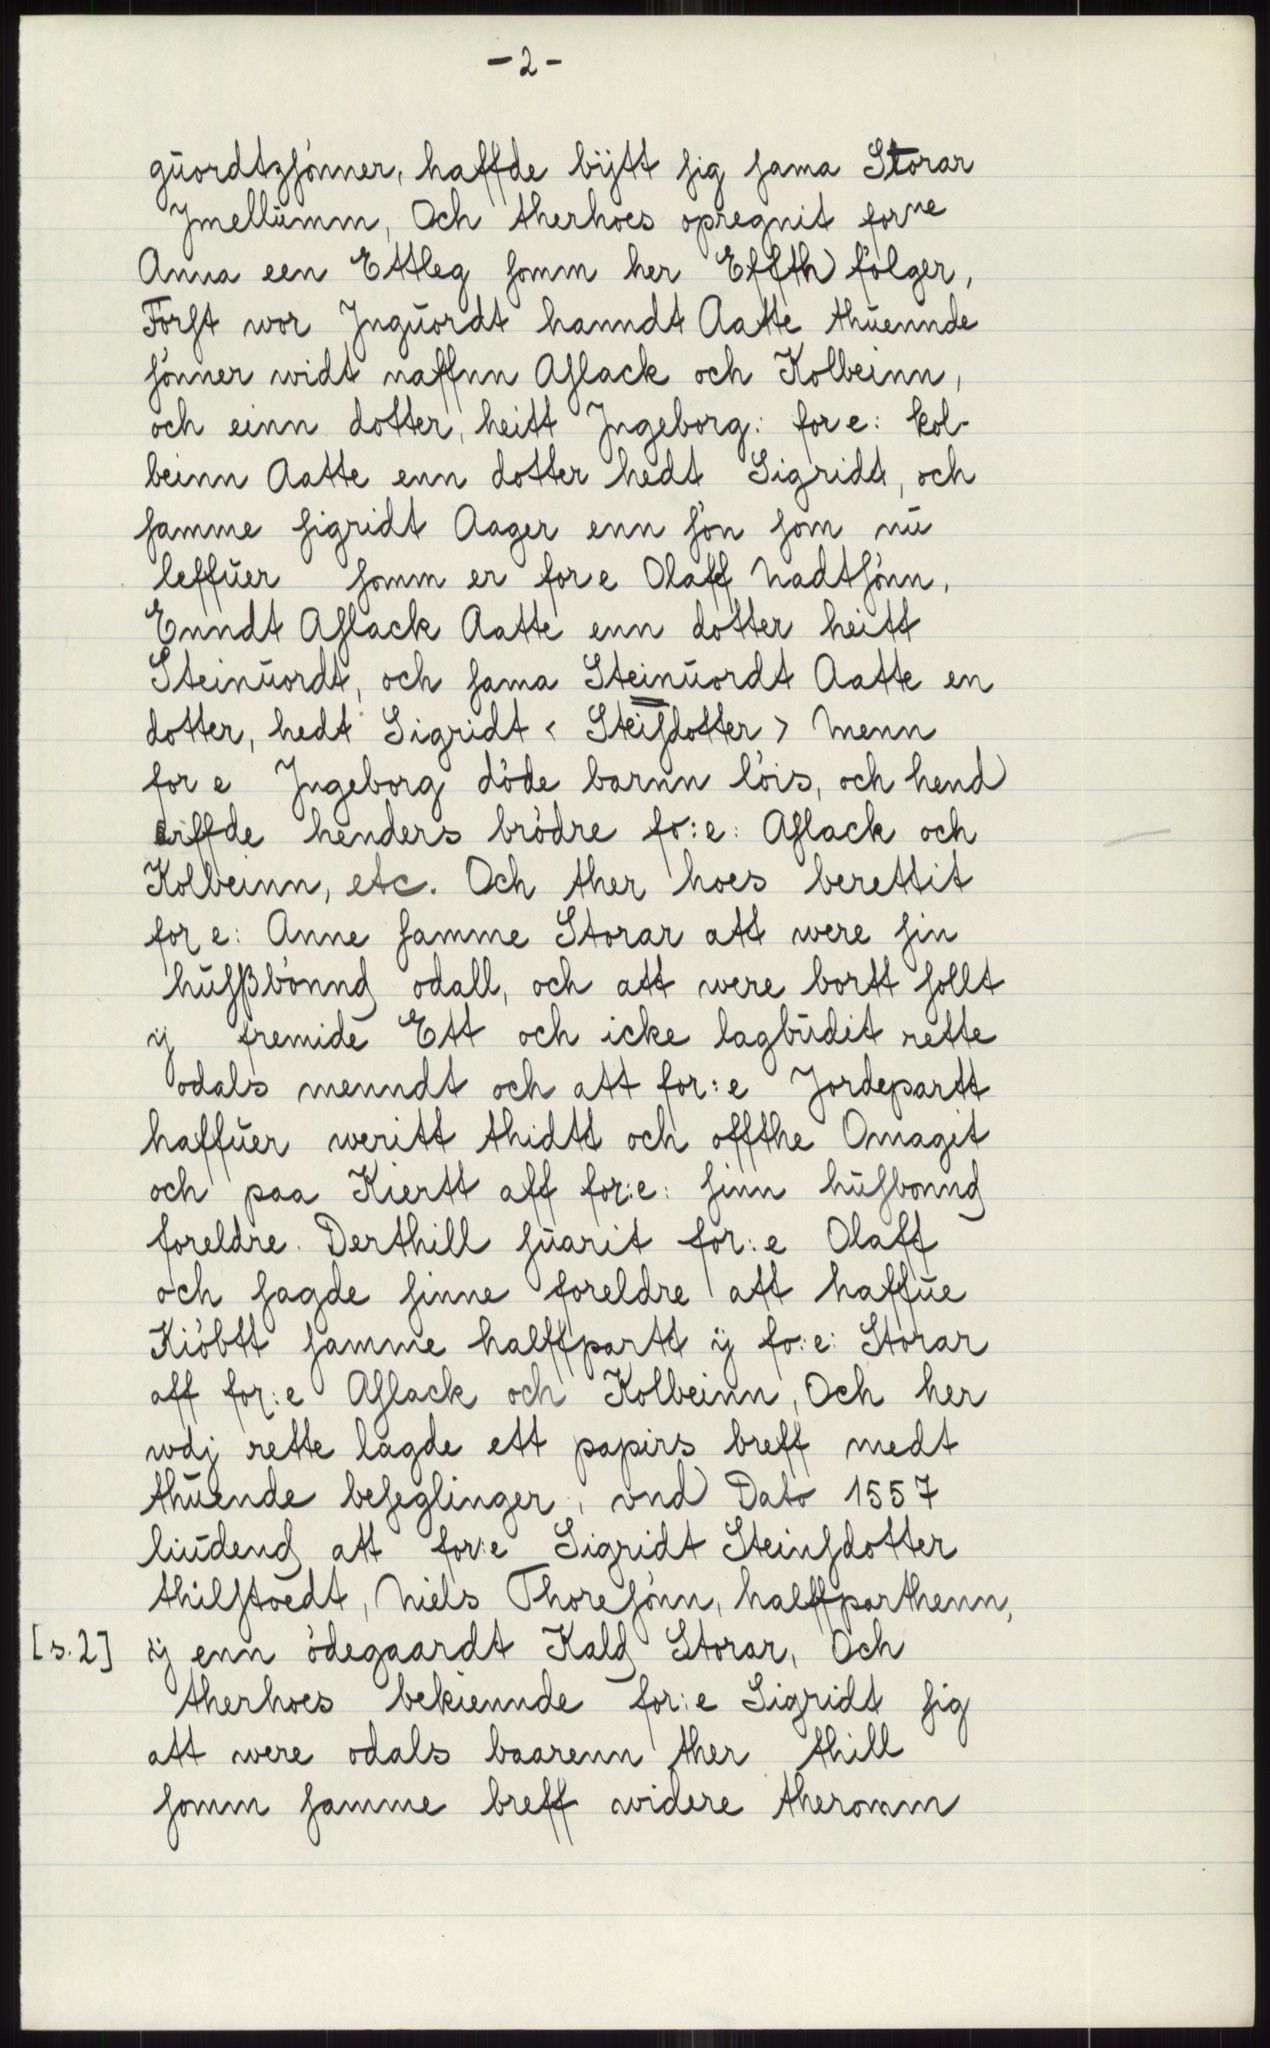 - 2 -
guordtzſönner, haffde bÿtt ſig ſama Storar
Jmellumm, Och therhoes opregnit forne
Anna een Ettleg ſomm her Effth fölger,
Forſt wor Jnguordt hanndt Aatte thuennde
ſönner widt naffnn Aſlack och Kolbeinn,
och einn dotter, heitt Jngeborg: for e: kol-
beinn Aatte enn dotter hedt Sigridt, och
ſamme ſigridt Aager enn ſön ſom nu
leffuer ſomm er for e Olaff Nadtſönn,
Enndt Aſlack Aatte enn dotter heitt
Steinuordt, och ſama Steinuordt Aatte en
dotter, hedt Sigridt < Steiſdotter > Menn
for e Jngeborg döde barnn löis, och hend
erffde henders brödre fo:e: Aſlack och
Kolbeinn, etc. Och ther hoes berettit
for e: Anne ſamme Storar att were ſin
huſßbönnd odall, och att were bortt ſollt
ÿ fremide Ett och icke lagbudit rette
odals menndt och att for:e Jordepartt
haffuer weritt thidtt och offthe Omagit
och paa Kiertt aff for:e: ſinn huſbonnd
foreldre. Derthill ſuarit for:e Olaff
och ſagde ſinne foreldre att haffue
Kiöbtt ſamme halffpartt ÿ fo:e: Storar
aff for:e Aſlack och Kolbeinn, Och her
wdj rette lagde ett papirs breff medt
thuende beſeglinger, vnd Dato 1557
liudend att for:e Sigridt Steinſdotter
thilſtoedt, Niels Thoreſönn, halffparthenn,
[s. 2] ÿ enn ödegaardt Kald Storar, Och
therhoes bekiennde for:e Sigridt ſig
att were odals baarenn ther thill
ſomm ſamme breff widere theromm